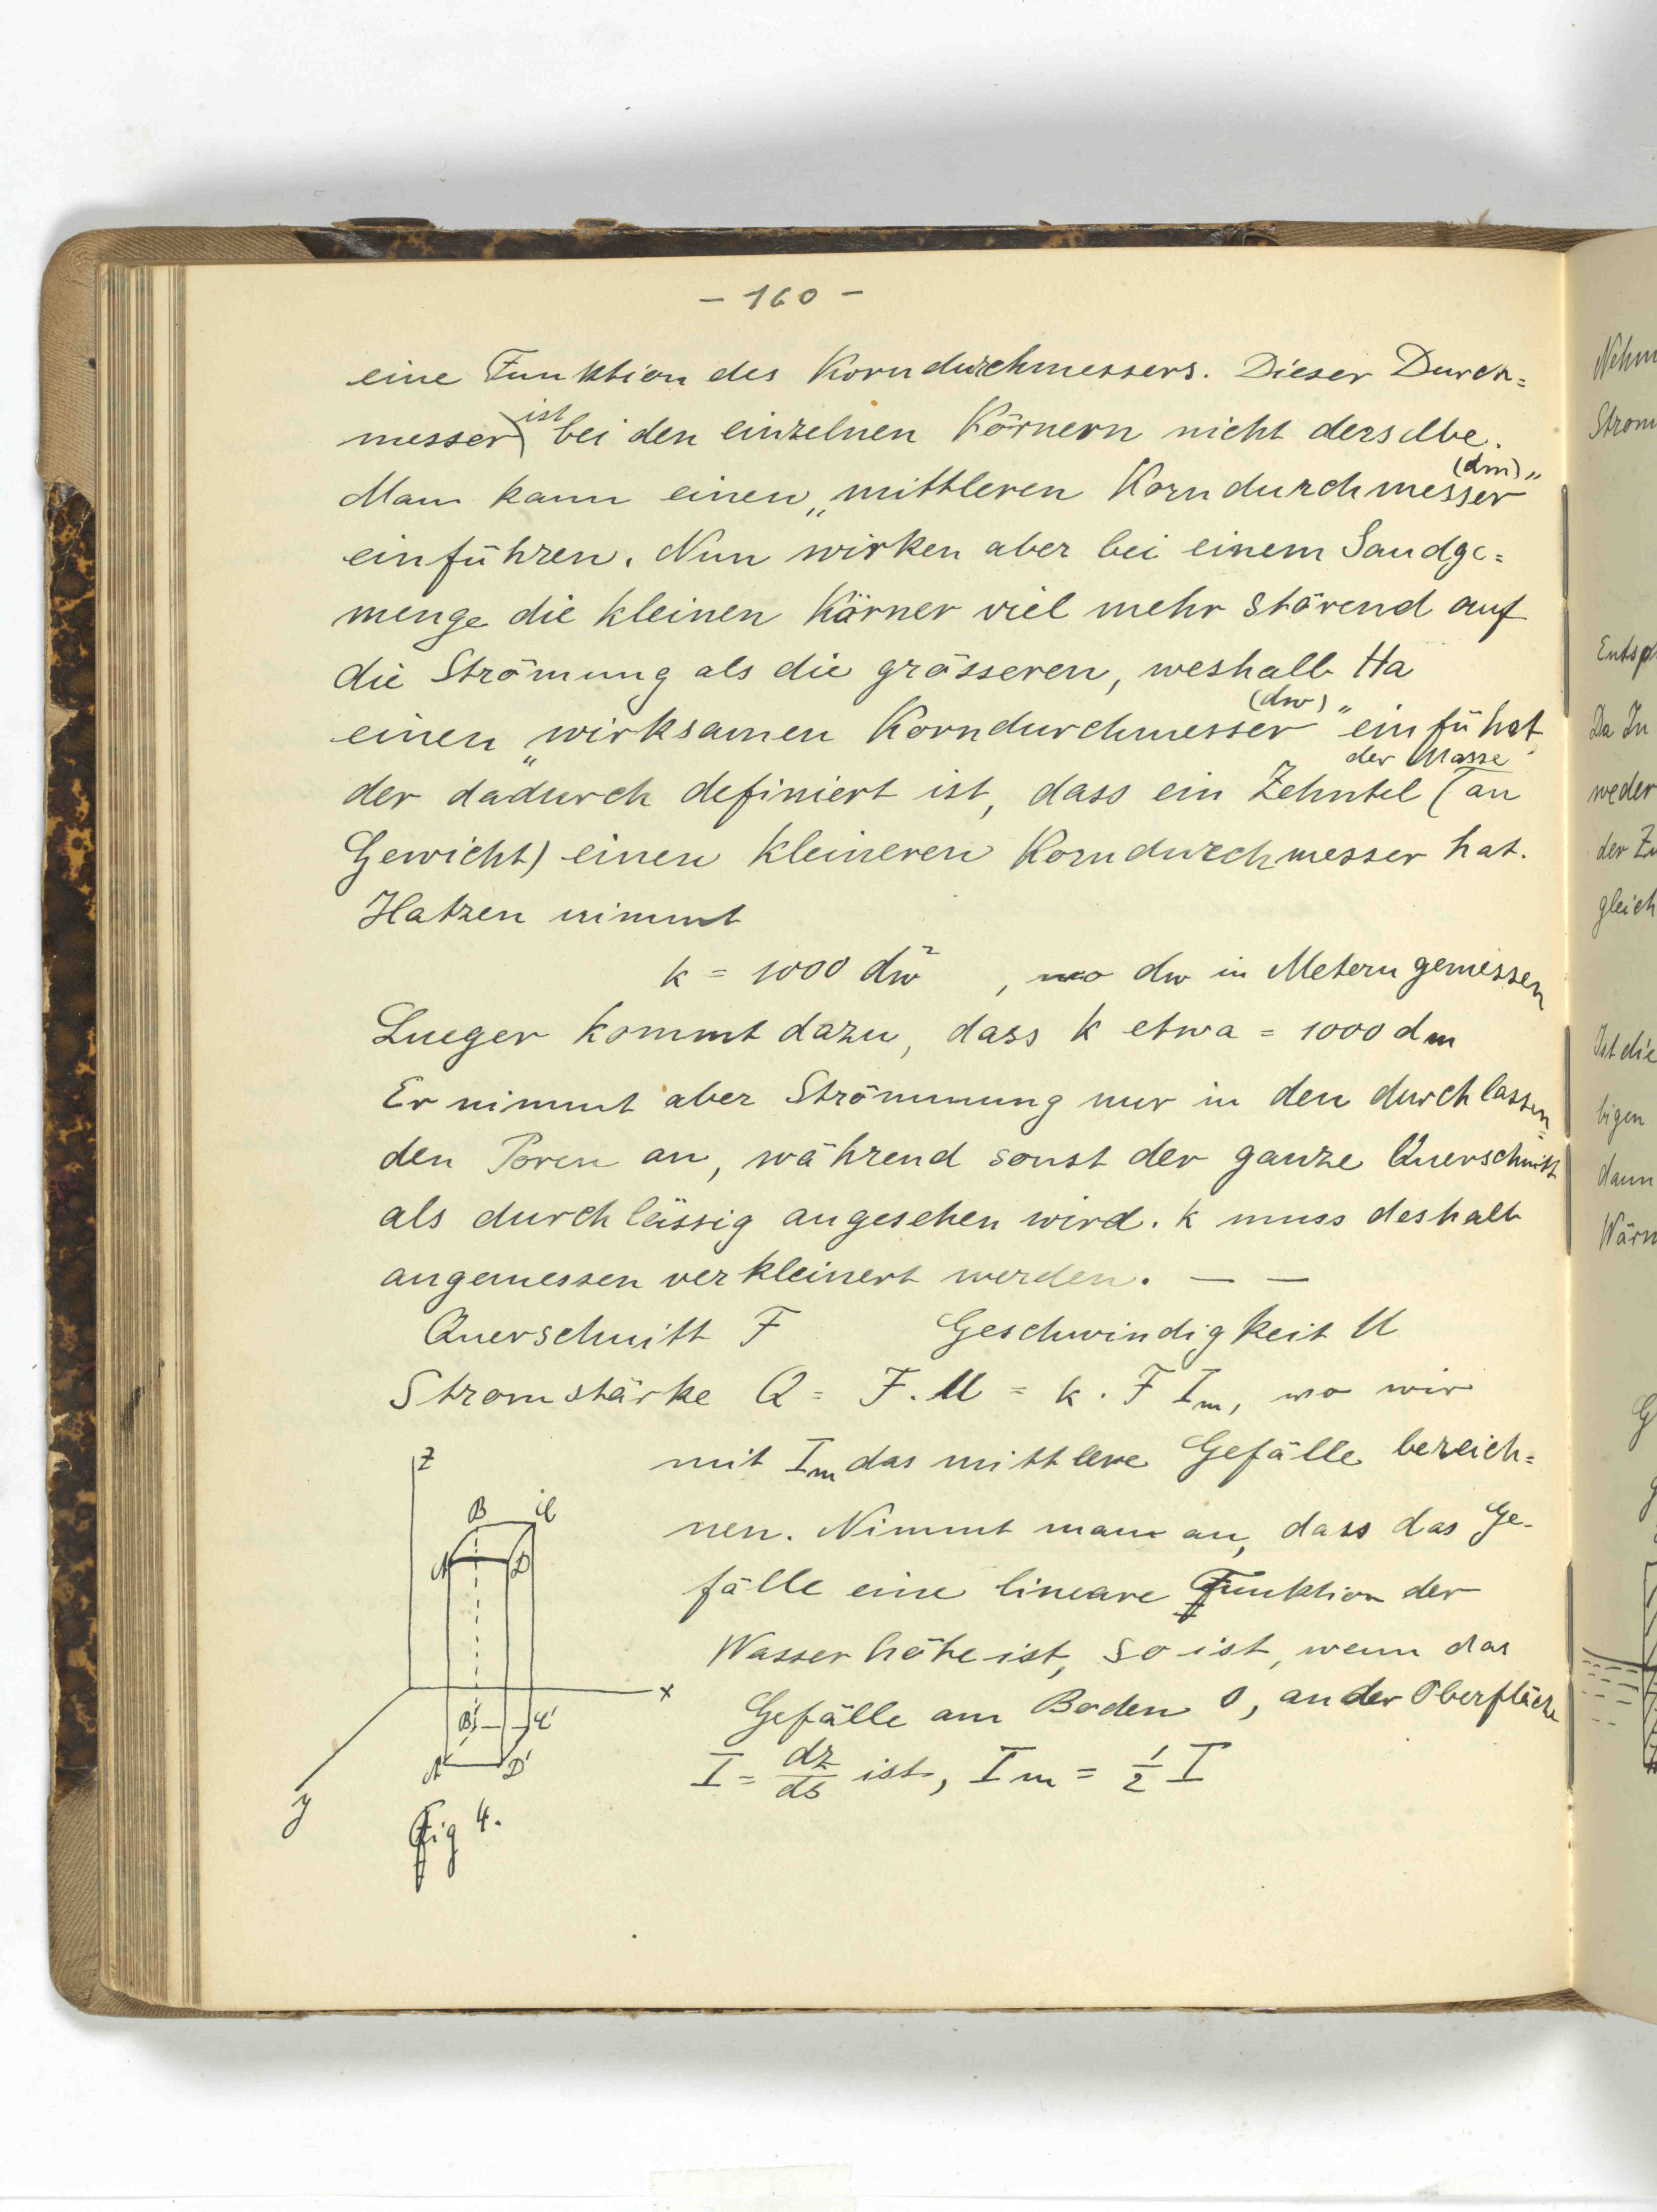 - 160 -
eine Funktion des Korndurchmessers. Dieser Durch=
messer ist bei den einzelnen Körnern nicht derselbe.
Man kann einen „mittleren Korndurchmesser (dm)"
einführen. Nun wirken aber bei einem Sandge=
menge die kleinen Körner viel mehr störend auf
die Strömung als die grösseren, weshalb Ha
einen „wirksamen Korndurchmesser (dw)" einführt,
der dadurch definiert ist, dass ein Zehntel (der Masse an
Gewicht) einen kleineren Korndurchmesser hat.
Hatzen nimmt
k = 1000 dw², wo dw in Metern gemessen
Lueger kommt dazu, dass k etwa = 1000 dm
Er nimmt aber Strömmung nur in den durchlassen=
den Poren an, während sonst der ganze Querschnitt
als durchlässig angesehen wird. k muss deshalb
angemessen verkleinert werden. — —
Querschnitt F Geschwindigkeit U
Stromstärke Q = F. U = k . F Im, wo wir
mit Im das mittlere Gefälle bezeich=
nen. Nimmt man an, dass das Ge-
fälle eine lineare Funktion der
Wasserhöhe ist, so ist, wenn das
Gefälle am Boden 0, an der Oberfläche
I = dz/ds ist, Im = 1/2 I
z
B C
A D
x
B' C'
A' D'
y
Fig 4.
Nehm
Strom
Entsp
Da In
weder
der Zu
gleich
Ist die
bigen
dann
Wärm
G